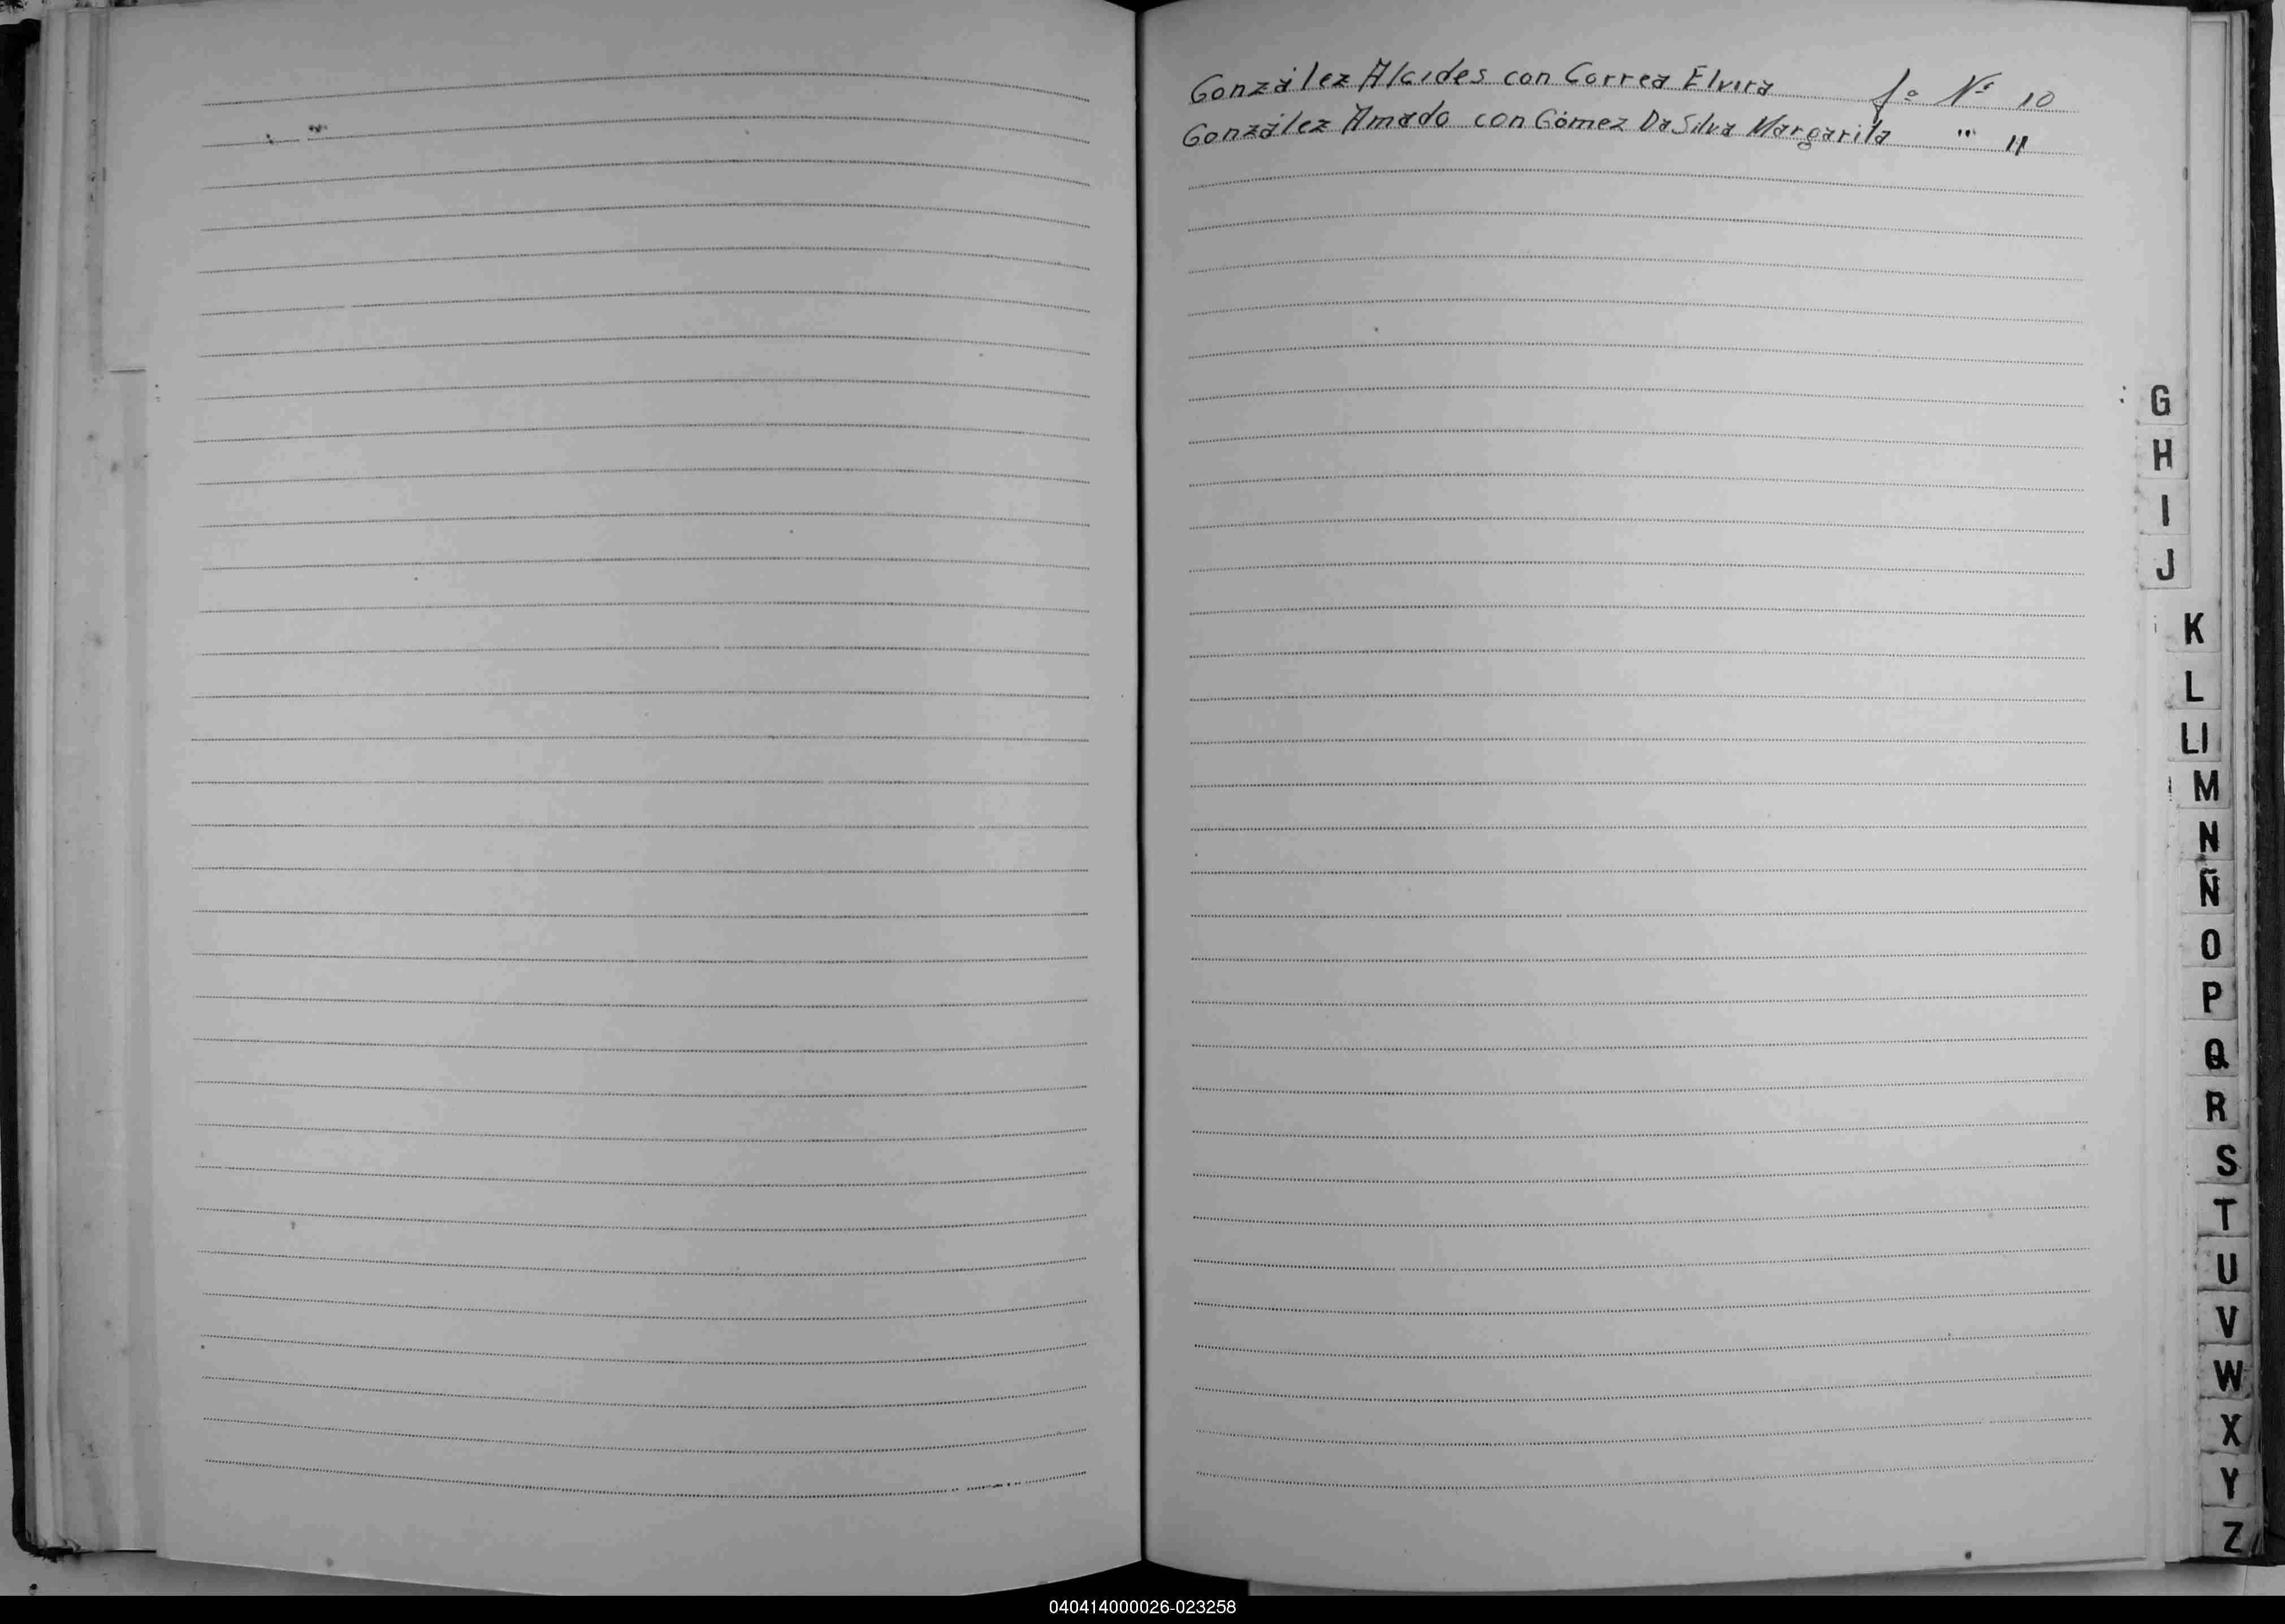 González Alcides con Correa Elvira fº Nº 10
González Amado con Gómez Da Silva Margarita " 11
G
H
I
J
K
L
Ll
M
N
Ñ
O
P
Q
R
S
T
U
V
W
X
Y
Z
040414000026-023258